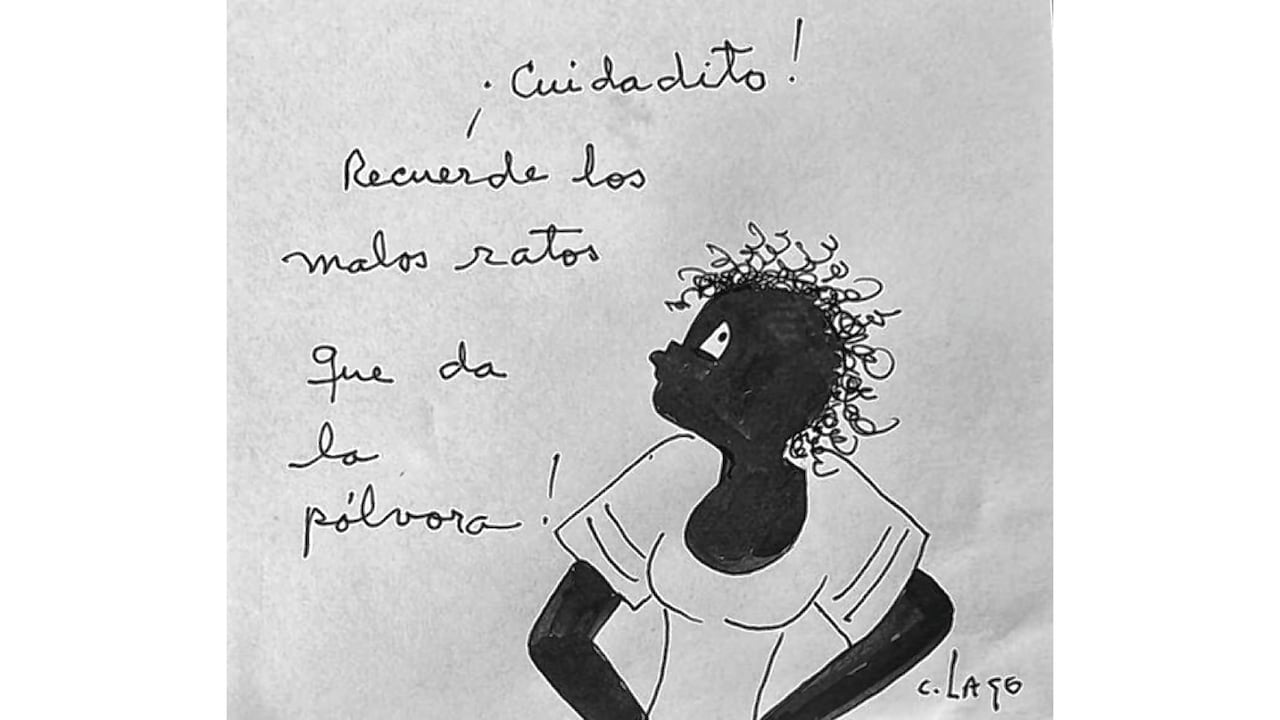 ¡Cuidadito!
Recuerde los
malos ratos
que da
la
pólvora!
C. LAGO